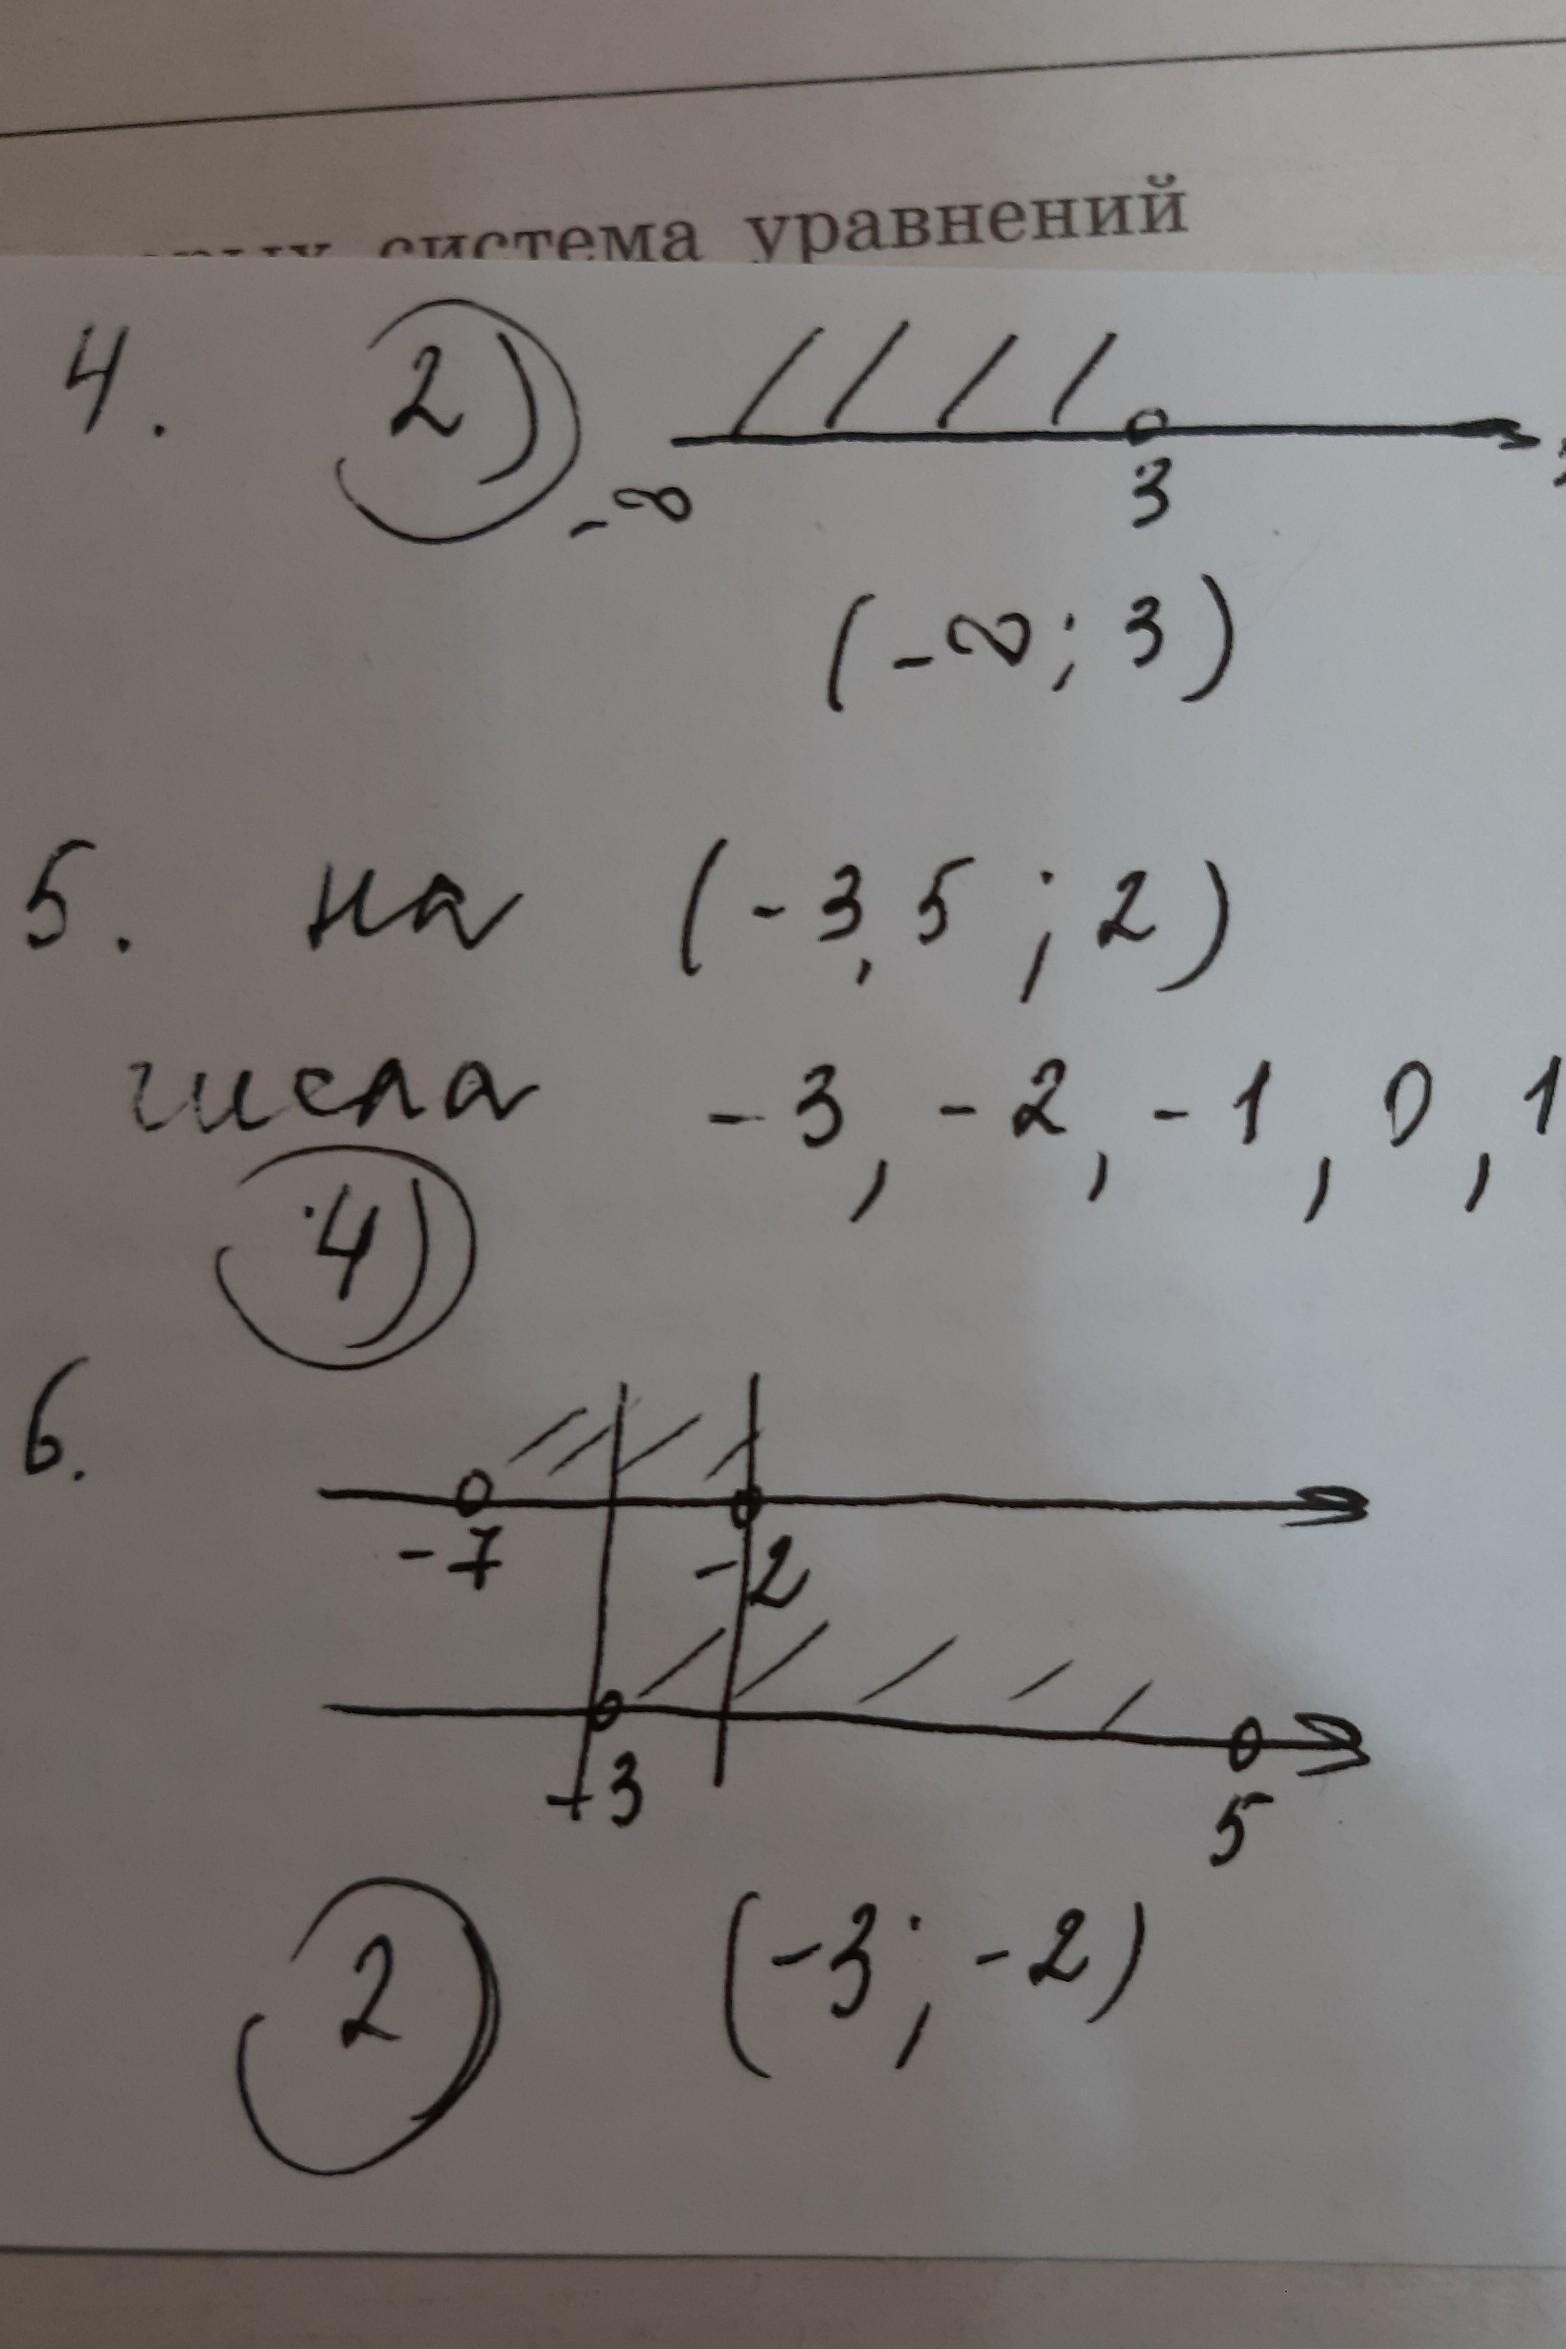 система уравнений
4. 2)
-∞ 3
(-∞; 3)
5. на (-3,5; 2)
числа -3, -2, -1, 0, 1
4)
6.
-7 -2
-3 5
2) (-3; -2)